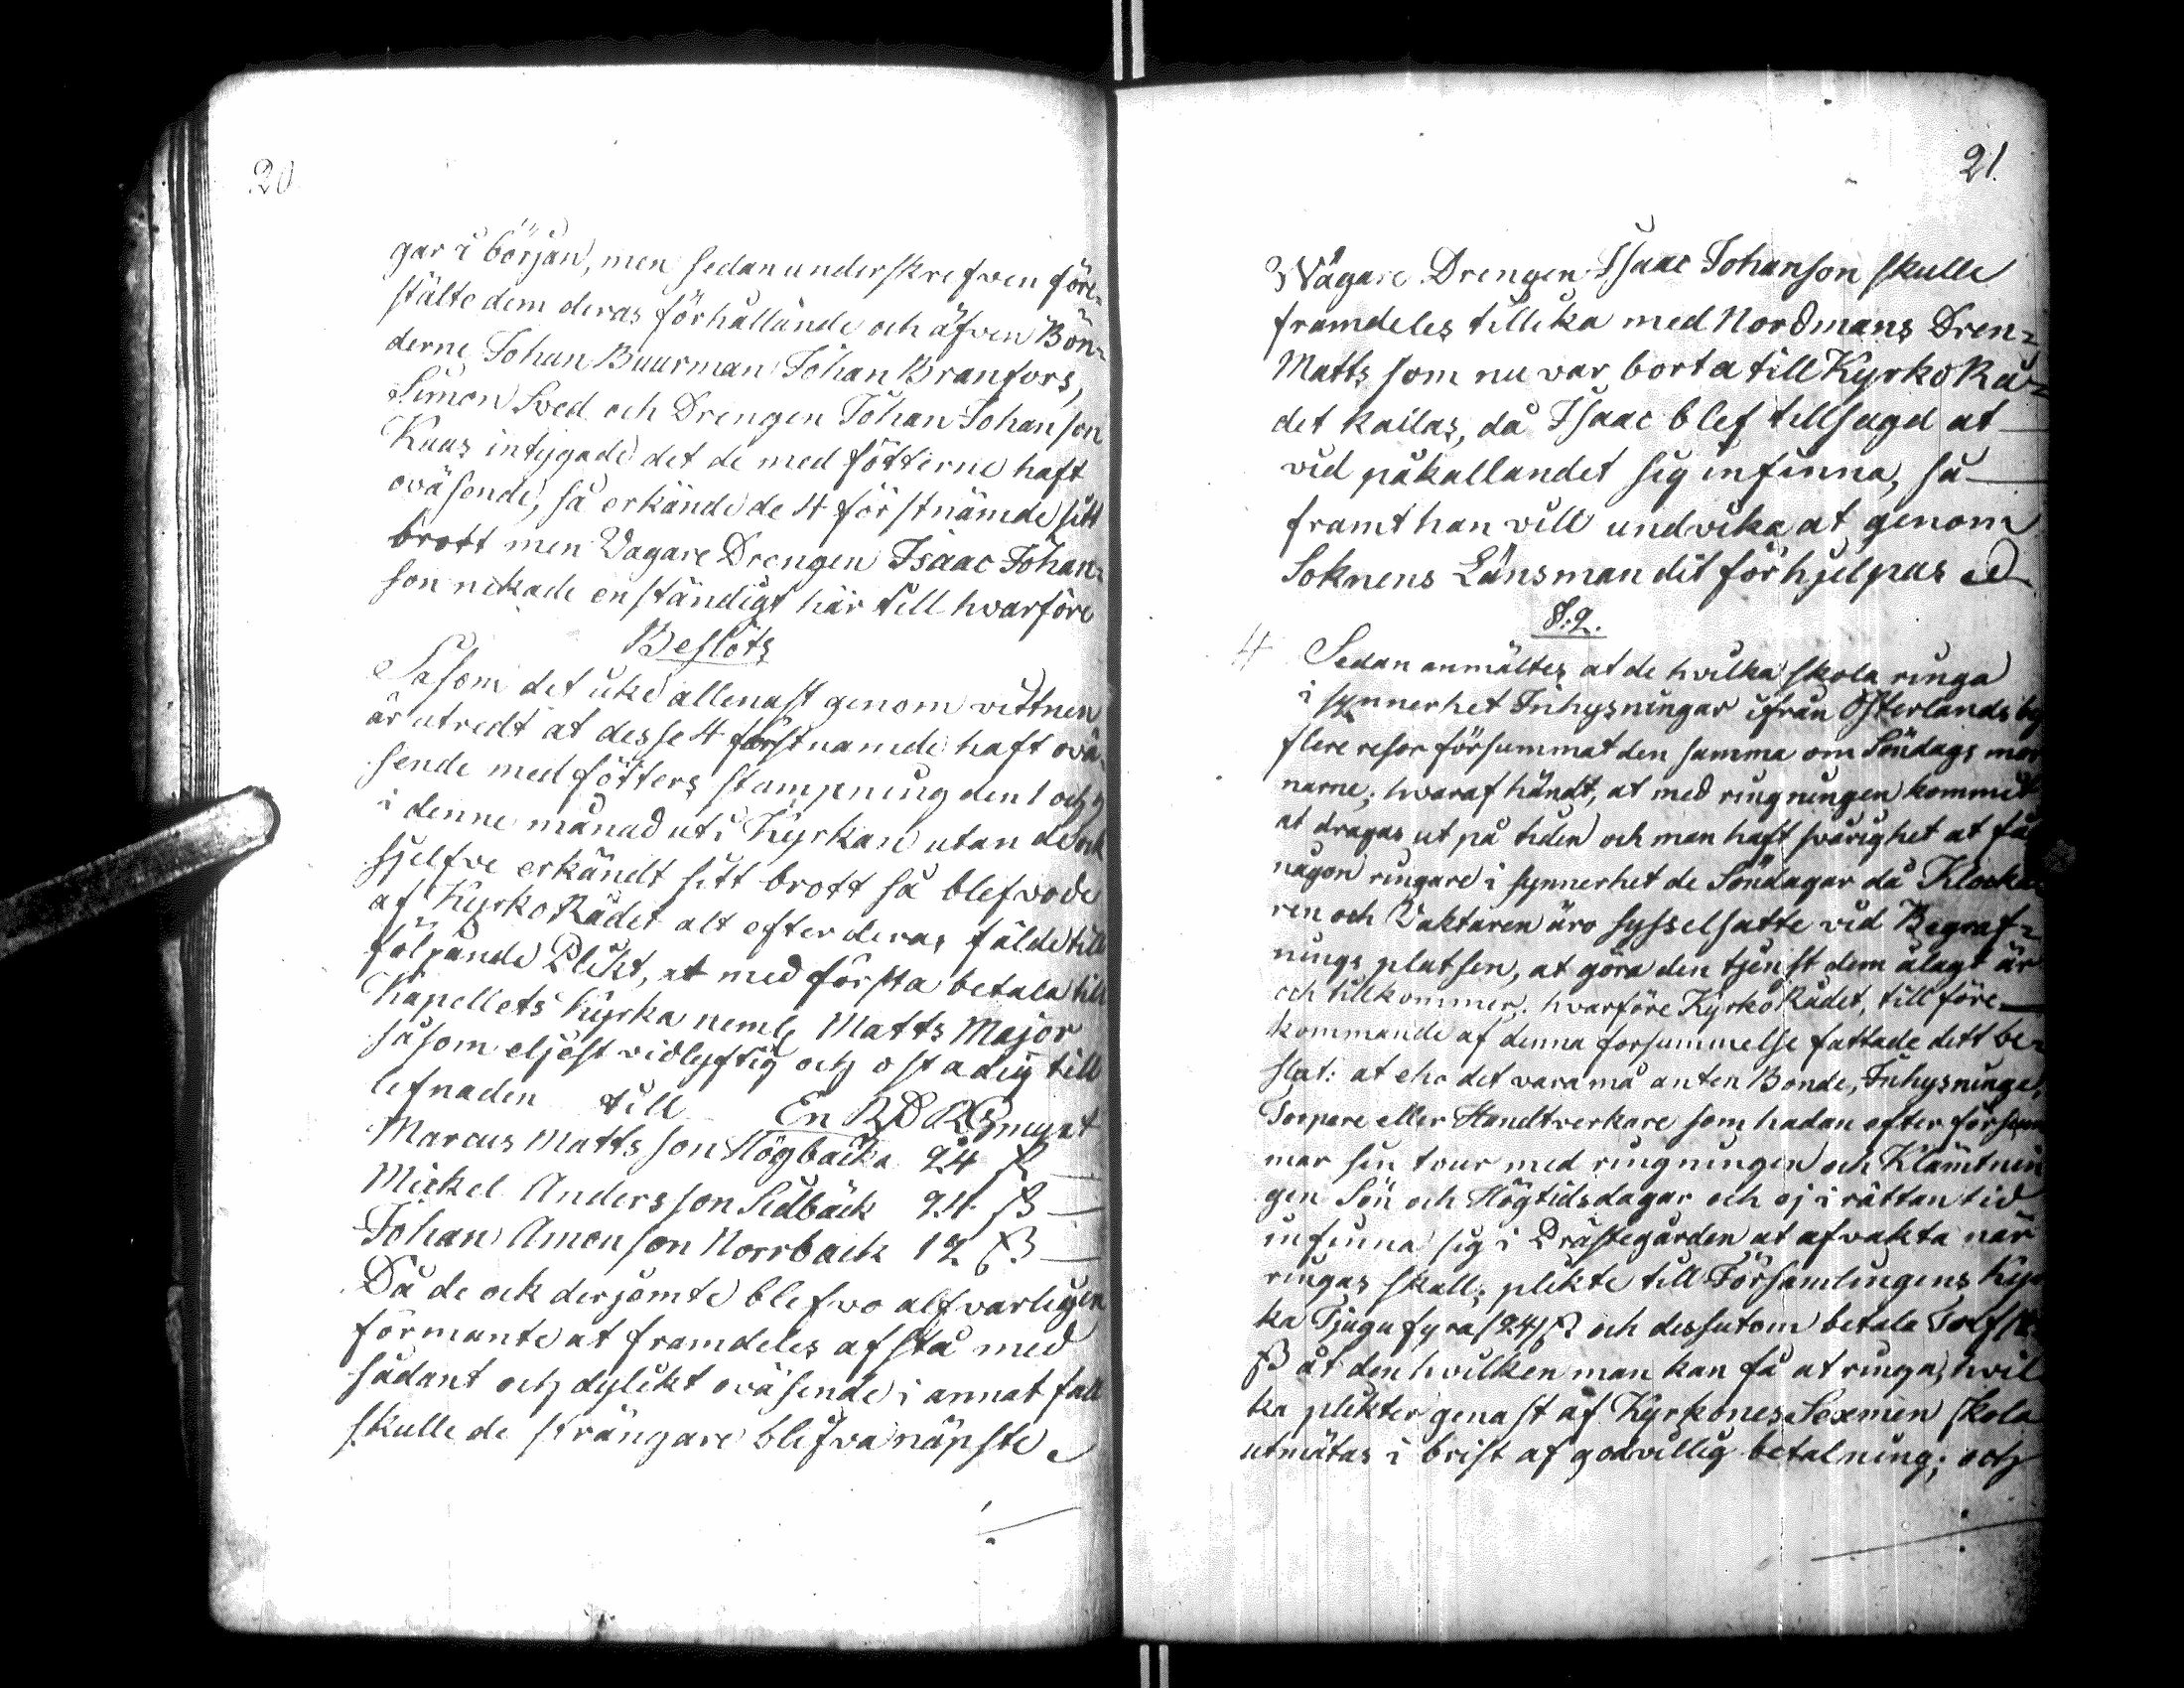 20
gar i början, men sedan underskrefwen före=
stälte dem deras förhållande och äfven Bön=
derne Johan Buurman Johan Branfors,
Simon Sved och Drengen Johan Johanson
Kuas intygade det de med fötterne haft
oväsende, så erkände de 4 förstnämde sitt
brott men Vagare Drengen Isaac Johan=
son nekade enständigt här till hvarföre
Beslöts
Såsom det icke allenast genom vittnen
är utredt at desse 4 förstnämde haft ovä=
sende med fötters stampning den 1 och
i denne månad uti Kyrkan utan de ock
sjelfve erkändt sitt brott så blefvo de
af KyrkoRådet alt efter deras fälde till
följande Plikt, at med första betala till
Kapellets Kyrka neml Matts Major
såsom eljest vidlyftig och ostadig till
lefnaden till En RD RGsmynt
Marcus Mattsson Högbacka 24 ß —
Mickel Andersson Sidbäck 24 ß —
Johan Amonson Norrback 12 ß —
Då de ock derjemte blefvo alfvarligen
förmante at framdeles afstå med
sådant och dylikt oväsende i annat fall
skulle de strängare blifva näpste
21.
Wågare Drengen Isaac Johanson skulle
framdeles tillika med Nordmans Dren=
Matts som nu var borta till KyrkoRå=
det kallas, då Isaac blef tillsagd at
vid påkallandet sig infinna, så
framt han vill undvika at genom
Soknens Länsman dit förhjelpas
§. 2.
4 Sedan anmältes at de hvilka skola ringa
i synnerhet Inhysningar ifrån Österlands by
flere resor försummat den samma om Söndags mor
narne; hvaraf händt, at med ringningen kommit
at dragas ut på tiden och man haft svårighet at få
någon ringare i synnerhet de Söndagar då Klocka
ren och Vaktaren äro sysselsatte vid Begraf=
nings platsen, at göra den tjenst dem ålagt är
och tillkommer. hvarföre KyrkoRådet, till före
kommande af denna försummelse fattade dett be=
slut: at eho det vara må anten Bonde, Inhysninge,
Torpare eller Handtverkare som hädan efter försum
mar sin tour med ringningen och Klämtnin
gen Sön och Högtidsdagar och ej i rättan tid
infinna sig i Prästegården at afvakta när
ringas skall; plikte till Församlingens Kyr
ka Tjugu fyra /24/ ß och dessutom betala Tolf /12/
ß åt den hvilken man kan få at ringa, hvil
ka plikter genast af Kyrkones Sexmen skola
utmätas i brist af godvillig betalning; och